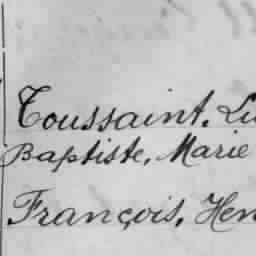 Toussaint. Lu
Baptiste, Marie
François, Hen